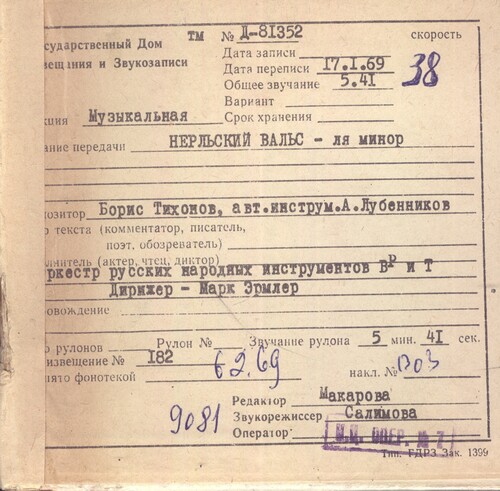 осударственный Дом ТМ № Д-81352 скорость
вещания и Звукозаписи Дата записи
Дата переписи 17.1.69 38
Общее звучание 5.41
Вариант
кция Музыкальная Срок хранения
ание передачи НЕРЛЬСКИЙ ВАЛЬС - ля минор
позитор Борис Тихонов, авт.инструм.А.Лубенников
р текста (комментатор, писатель,
поэт. обозреватель)
олнитель (актер, чтец, диктор)
ркестр русских народных инструментов ВР и Т
Дирижер - Марк Эрмлер
ровождение
о рулонов Рулон № Звучание рулона 5 мин. 41 сек.
извещение № 182
нято фонотекой 6 2.69 накл. №
Редактор Макарова
9081 Звукорежиссер Салимова
Оператор ОПЕР. № 7
Тип. ГДРЗ Зак. 1399